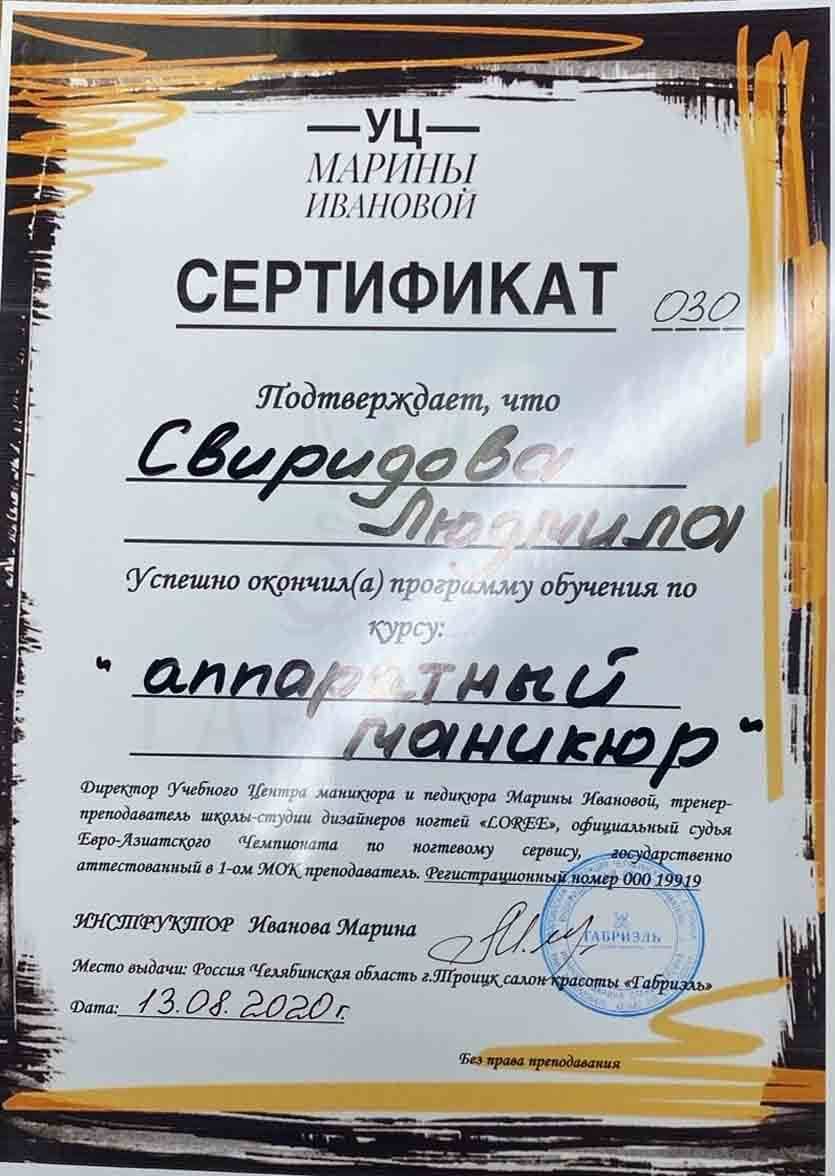 —УЦ—
МАРИНЫ
ИВАНОВОЙ
СЕРТИФИКАТ 030
Подтверждает, что
Свиридова
Людмила
Успешно окончил(а) программу обучения по
курсу:
" аппаратный
маникюр "
Директор Учебного Центра маникюра и педикюра Марины Ивановой, тренер-
преподаватель школы-студии дизайнеров ногтей «LOREE», официальный судья
Евро-Азиатского Чемпионата по ногтевому сервису, государственно
аттестованный в 1-ом МОК преподаватель. Регистрационный номер 000 19919
ИНСТРУКТОР Иванова Марина
ГАБРИЭЛЬ
Место выдачи: Россия Челябинская область г.Троицк салон красоты «Габриэль»
Дата: 13.08.2020г.
Без права преподавания